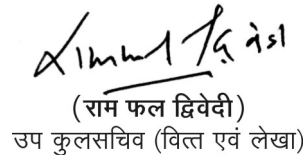 (राम फल द्विवेदी)
उप कुलसचिव (वित्त एवं लेखा)